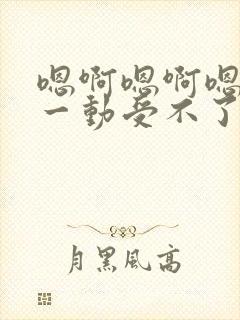 嗯啊嗯啊嗯
一動受不了
月黑風高